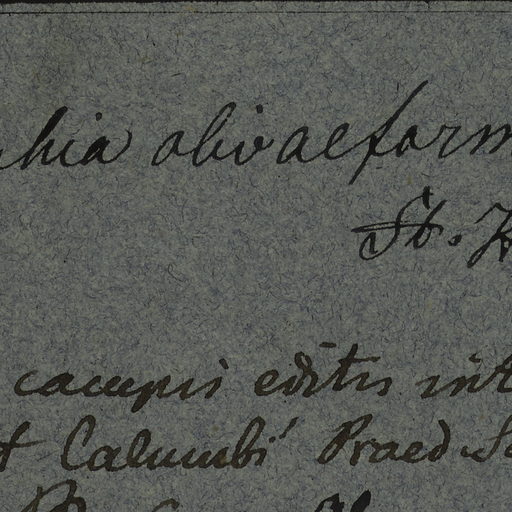 hia olivaeform
St. H
campis editis int
Calumbi Praed